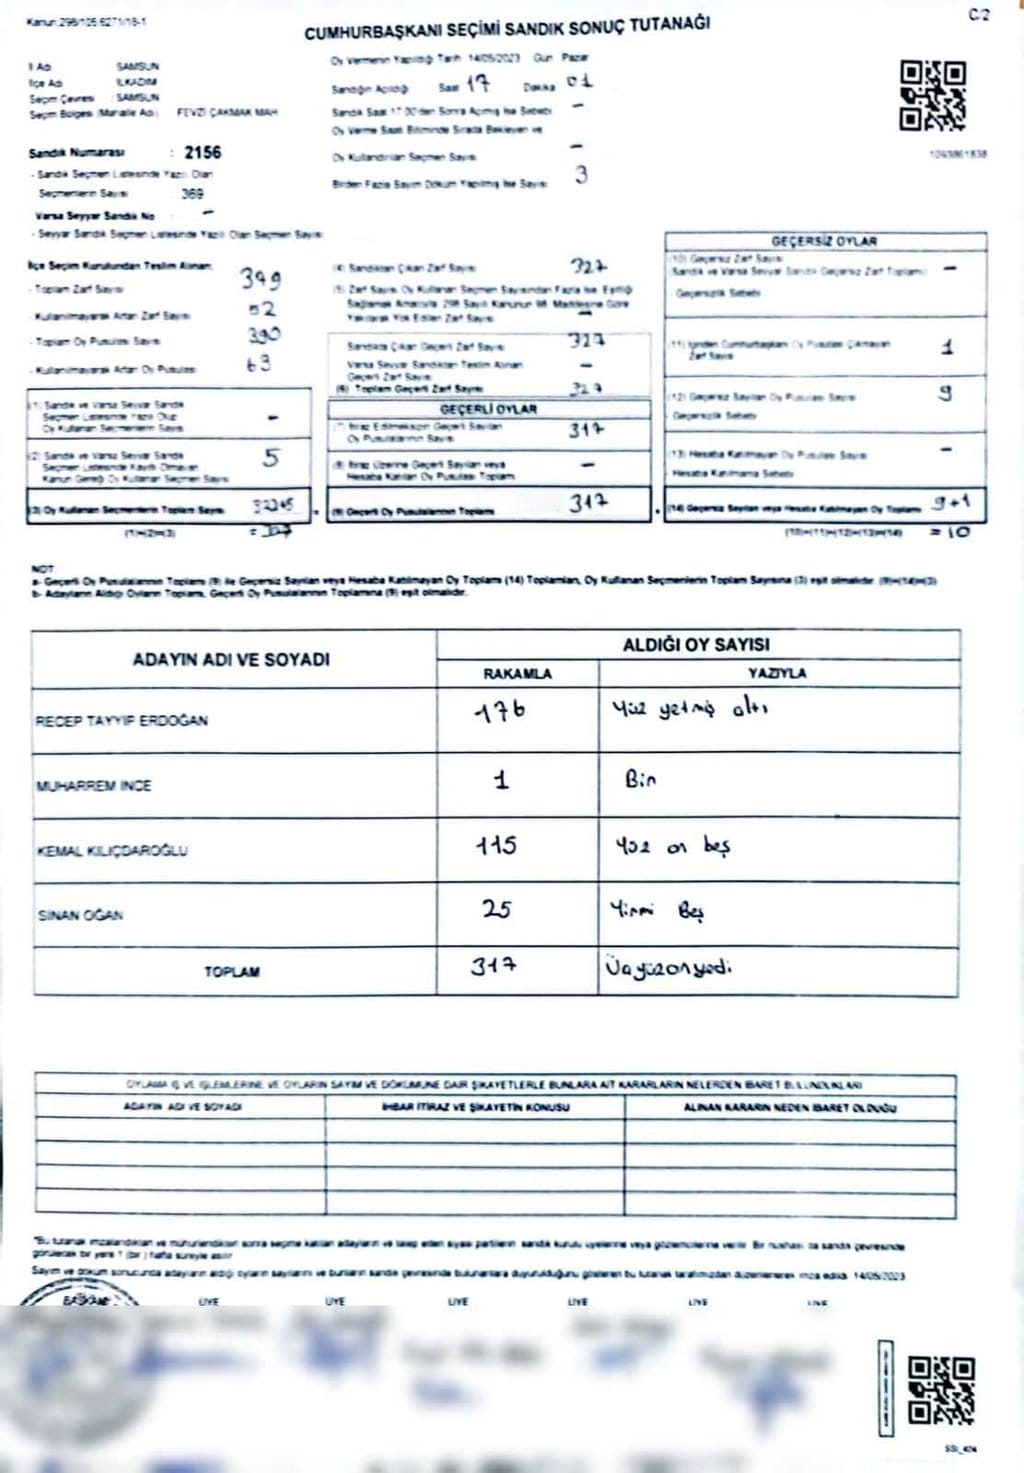 Kanun:298/105.6271/18-1
C/2
CUMHURBAŞKANI SEÇİMİ SANDIK SONUÇ TUTANAĞI
İl Adı SAMSUN
İlçe Adı İLKADIM
Seçim Çevresi : SAMSUN
Seçim Bölgesi (Mahalle Adı) FEVZİ ÇAKMAK MAH
Sandık Numarası : 2156
- Sandık Seçmen Listesinde Yazılı Olan
Seçmenlerin Sayısı 369
Varsa Seyyar Sandık No : -
- Seyyar Sandık Seçmen Listesinde Yazılı Olan Seçmen Sayısı
Oy Vermenin Yapıldığı Tarih 14/05/2023 Gün Pazar
Sandığın Açıldığı Saat 17 Dakika 01
Sandık Saat 17:00'den Sonra Açılmış İse Sebebi -
Oy Verme Saati Bitiminde Sırada Bekleyen ve
Oy Kullandırılan Seçmen Sayısı -
Birden Fazla Sayım Döküm Yapılmış İse Sayısı 3
1093861838
İlçe Seçim Kurulundan Teslim Alınan:
- Toplam Zarf Sayısı 399
- Kullanılmayarak Artan Zarf Sayısı 52
- Toplam Oy Pusulası Sayısı 390
- Kullanılmayarak Artan Oy Pusulası 63
(1) Sandık ve Varsa Seyyar Sandık
Seçmen Listesinde Yazılı Olup
Oy Kullanan Seçmenlerin Sayısı -
(2) Sandık ve Varsa Seyyar Sandık
Seçmen Listesinde Kayıtlı Olmayan
Kanun Gereği Oy Kullanan Seçmen Sayısı 5
(3) Oy Kullanan Seçmenlerin Toplam Sayısı
(1)+(2)=(3) = 327
(4) Sandıktan Çıkan Zarf Sayısı 327
(5) Zarf Sayısı Oy Kullanan Seçmen Sayısından Fazla İse, Eşitliği
Sağlamak Amacıyla 298 Sayılı Kanunun 98. Maddesine Göre
Yakılarak Yok Edilen Zarf Sayısı -
Sandıkta Çıkan Geçerli Zarf Sayısı 327
Varsa Seyyar Sandıktan Teslim Alınan
Geçerli Zarf Sayısı -
(6) Toplam Geçerli Zarf Sayısı 327
GEÇERLİ OYLAR
(7) İtiraz Edilmeksizin Geçerli Sayılan
Oy Pusulalarının Sayısı 317
(8) İtiraz Üzerine Geçerli Sayılan veya
Hesaba Katılan Oy Pusulası Toplamı -
(9) Geçerli Oy Pusulalarının Toplamı 317
GEÇERSİZ OYLAR
(10) Geçersiz Zarf Sayısı
Sandık ve Varsa Seyyar Sandık Geçersiz Zarf Toplamı) -
- Geçersizlik Sebebi
(11) İçinden Cumhurbaşkanı Oy Pusulası Çıkmayan
Zarf Sayısı 1
(12) Geçersiz Sayılan Oy Pusulası Sayısı 9
- Geçersizlik Sebebi
(13) Hesaba Katılmayan Oy Pusulası Sayısı -
- Hesaba Katılmama Sebebi
(14) Geçersiz Sayılan veya Hesaba Katılmayan Oy Toplamı 9+1
(10)+(11)+(12)+(13)=(14) = 10
NOT
a- Geçerli Oy Pusulalarının Toplamı (9) ile Geçersiz Sayılan veya Hesaba Katılmayan Oy Toplamı (14) Toplamları, Oy Kullanan Seçmenlerin Toplam Sayısına (3) eşit olmalıdır. (9)+(14)=(3)
b- Adayların Aldığı Oyların Toplamı, Geçerli Oy Pusulalarının Toplamına (9) eşit olmalıdır.
ADAYIN ADI VE SOYADI ALDIĞI OY SAYISI
RAKAMLA YAZIYLA
RECEP TAYYİP ERDOĞAN 176 Yüz yetmiş altı
MUHARREM İNCE 1 Bir
KEMAL KILIÇDAROĞLU 115 Yüz on beş
SİNAN OĞAN 25 Yirmi Beş
TOPLAM 317 Üçyüzonyedi
OYLAMA İŞ VE İŞLEMLERİNE VE OYLARIN SAYIM VE DÖKÜMÜNE DAİR ŞİKAYETLERLE BUNLARA AİT KARARLARIN NELERDEN İBARET BULUNDUKLARI
ADAYIN ADI VE SOYADI İHBAR İTİRAZ VE ŞİKAYETİN KONUSU ALINAN KARARIN NEDEN İBARET OLDUĞU
*Bu tutanak imzalandıktan ve mühürlendikten sonra seçime katılan adayların ve talep eden siyasi partilerin sandık kurulu üyelerine veya gözlemcilerine verilir. Bir nüshası da sandık çevresinde
görülecek bir yere 1 (bir) hafta süreyle asılır
Sayım ve döküm sonucunda adayların aldığı oyların sayılarını ve bunların sandık çevresinde bulunanlara duyurulduğunu gösteren bu tutanak tarafımızdan düzenlenerek imza edildi. 14/05/2023
BAŞKAN ÜYE ÜYE ÜYE ÜYE ÜYE ÜYE